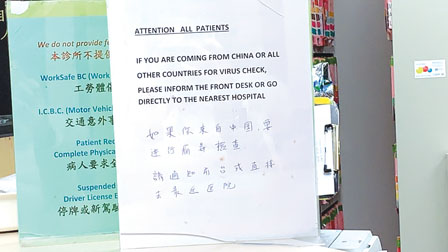 We do not provide fo
本診所不提供
WorkSafe BC (Work
工勞體傷
I.C.B.C. (Motor Vehic
交通意外事
Patient Req
Complete Physica
病人要求全
Suspended
Driver License E
停牌或新駕駛
ATTENTION ALL PATIENTS
IF YOU ARE COMING FROM CHINA OR ALL
OTHER COUNTRIES FOR VIRUS CHECK,
PLEASE INFORM THE FRONT DESK OR GO
DIRECTLY TO THE NEAREST HOSPITAL
如果你来自中国,要
进行病毒检查
請通知前台或直接
去最近医院